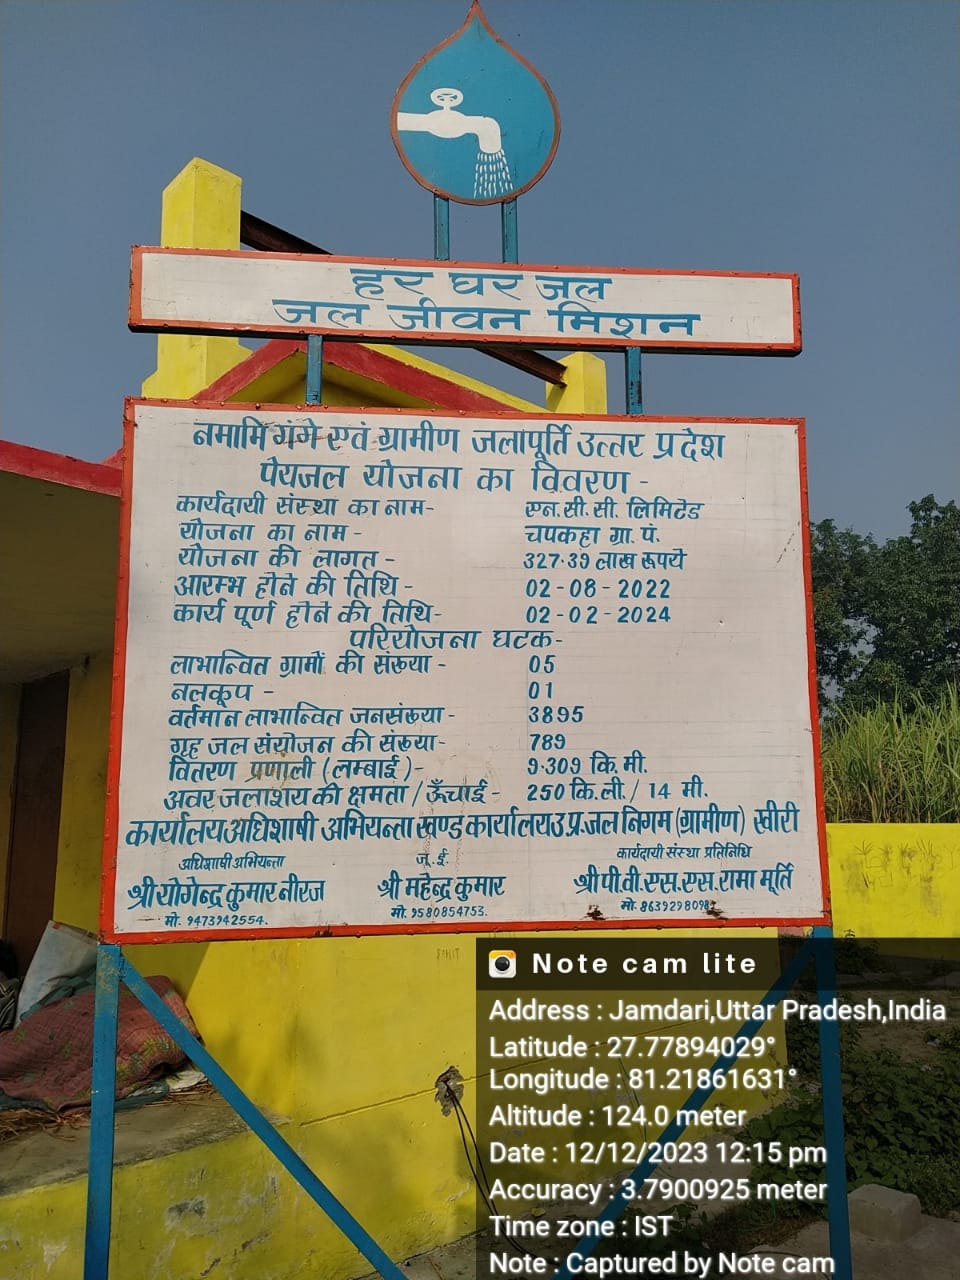 हर घर जल
जल जीवन मिशन
नमामि गंगे एवं ग्रामीण जलापूर्ति उत्तर प्रदेश
पेयजल योजना का विवरण -
कार्यदायी संस्था का नाम- एन.सी.सी. लिमिटेड
योजना का नाम - चपकहा ग्रा. पं.
योजना की लागत - 327.39 लाख रूपये
आरम्भ होने की तिथि - 02-08-2022
कार्य पूर्ण होने की तिथि- 02-02-2024
परियोजना घटक-
लाभान्वित ग्रामों की संख्या - 05
नलकूप - 01
वर्तमान लाभान्वित जनसंख्या - 3895
गृह जल संयोजन की संख्या- 789
वितरण प्रणाली (लम्बाई)- 9.309 कि.मी.
अवर जलाशय की क्षमता / ऊँचाई - 250 कि.ली. / 14 मी.
कार्यालय अधिशाषी अभियन्ता खण्ड कार्यालय उ.प्र. जल निगम (ग्रामीण) खीरी
अधिशाषी अभियन्ता जू.ई. कार्यदायी संस्था प्रतिनिधि
श्री योगेन्द्र कुमार नीरज श्री महेन्द्र कुमार श्री पी.वी.एस.एस. रामा मूर्ति
मो. 9473942554. मो. 9580854753. मो.
Note cam lite
Address : Jamdari,Uttar Pradesh,India
Latitude : 27.77894029°
Longitude : 81.21861631°
Altitude : 124.0 meter
Date : 12/12/2023 12:15 pm
Accuracy : 3.7900925 meter
Time zone : IST
Note : Captured by Note cam